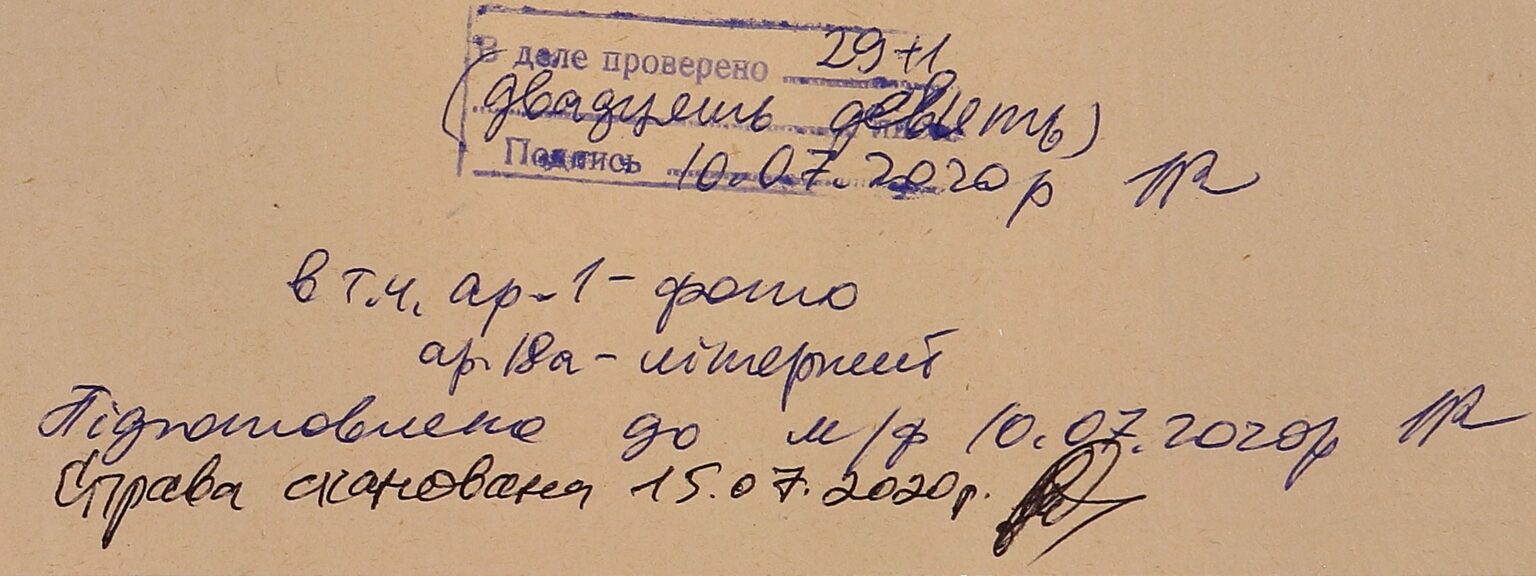 В деле проверено 29+1
(двадцять девять)
Подпись 10.07.2020р
в т.ч. ар. 1 - фото
ар. 18а - літерний
Підготовлено до м/ф 10.07.2020р
Справа сканована 15.07.2020р.